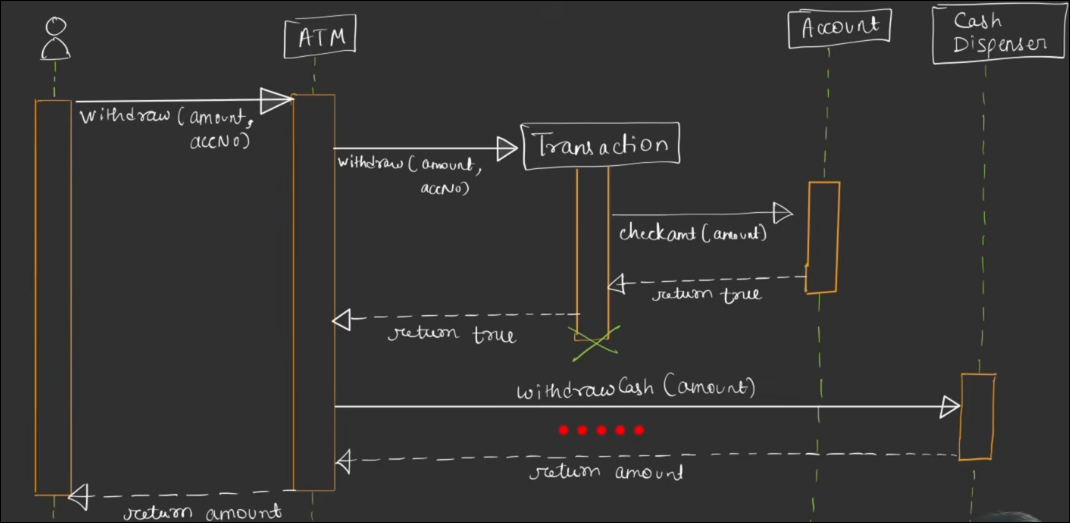 ATM
Account
Cash
Dispenser
withdraw(amount,
accNo)
Transaction
withdraw(amount,
accNo)
checkamt(amount)
return true
return true
withdrawCash(amount)
return amount
return amount